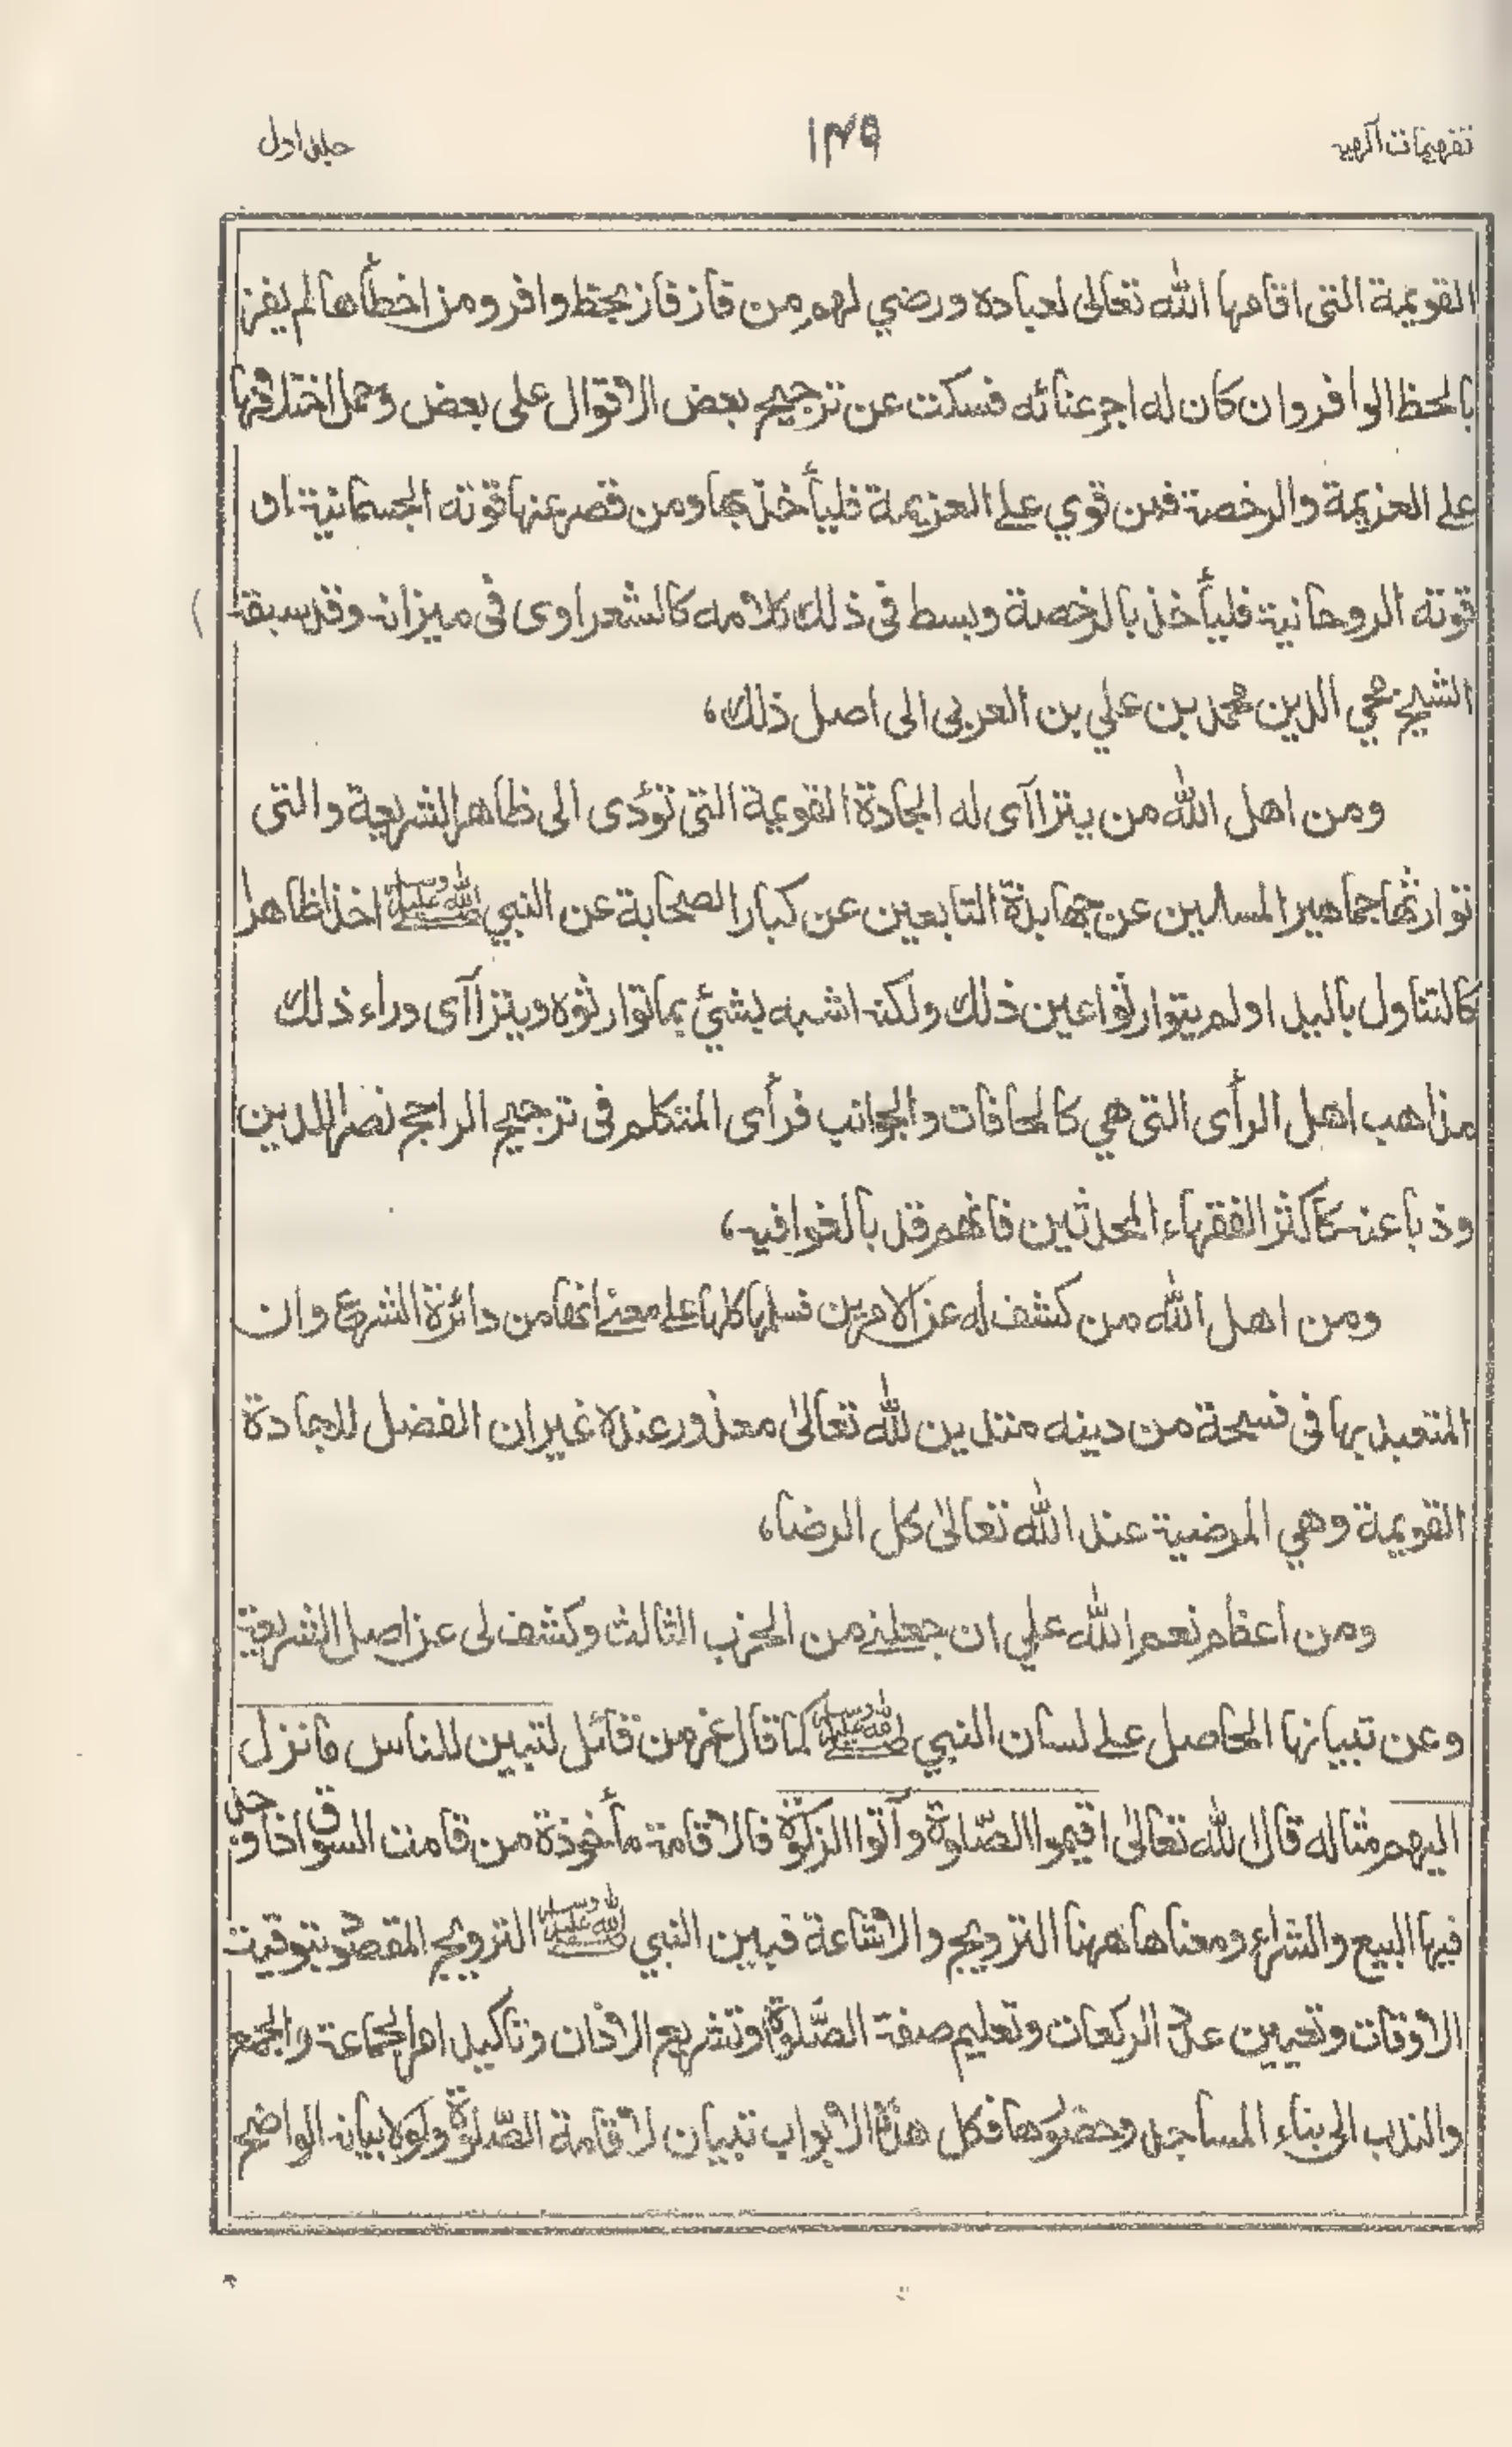 تفهيمات آلهيه ١٣٩ جلد اول
القويمة التى اقامها الله تعالى لعبادة ورضي لهم من فاز فاز بحظ وافر ومن اخطأها لم يفز
بالحظ الوافر وان كان له اجر عنائه فسكت عن ترجيح بعض الاقوال على بعض وحمل اختلافها
على العزيمة والرخصة فمن قوي على العزيمة فليأخذ بها ومن قصر عنها قوته الجسمانية او
قوته الروحانية فليأخذ بالرخصة وبسط فى ذلك كلامه كالشعراوى فى ميزانه وقد سبقه
الشيخ محي الدين محمد بن علي بن العربى الى اصل ذلك،
ومن اهل الله من يتراآى له الجادة القويمة التى تؤدى الى ظاهر الشريعة والتى
توارثها جماهير المسلمين عن جهابذة التابعين عن كبار الصحابة عن النبي ﷺ اخذا ظاهرا
كالتناول باليد او لم يتوارثوا عين ذلك ولكنه اشبه بشيء بما توارثوه ويتراآى وراء ذلك
مذاهب اهل الرأى التى هي كالحافات والجوانب فرأى المتكلم فى ترجيح الراجح نصرا للدين
وذبا عنه كاكثر الفقهاء المحدثين فانهم قد بالغوا فيه،
ومن اهل الله من كشف له عن الامرين فسلمها كلها على معنے انها من دائرة الشرع وان
المتعبد بها فى فسحة من دينه متدين لله تعالىٰ معذور عندة غير ان الفضل للجادة
القويمة وهي المرضية عند الله تعالىٰ كل الرضا،
ومن اعظم نعم الله علي ان جعلنے من الحزب الثالث وكشف لى عن اصل الشريعة
وعن تبيانها الحاصل على لسان النبي ﷺ كما قال عز من قائل لتبين للناس ما نزل
اليهم مثاله قال لله تعالىٰ اقيموا الصّلوة وآتوا الزكوة فالاقامة مأخوذة من قامت السوق اذا وجد
فيها البيع والشراء ومعناها ههنا الترويج والاشاعة فبين النبي ﷺ الترويج المقصود بتوقيت
الاوقات وتعيين عدد الركعات وتعليم صفة الصّلوة وتشريع الاذان وتاكيد امر الجماعة والجمع
والندب الى بناء المساجد وحضورها فكل هذة الابواب تبيان لاقامة الصّلوة ولولا بيانه الواضح